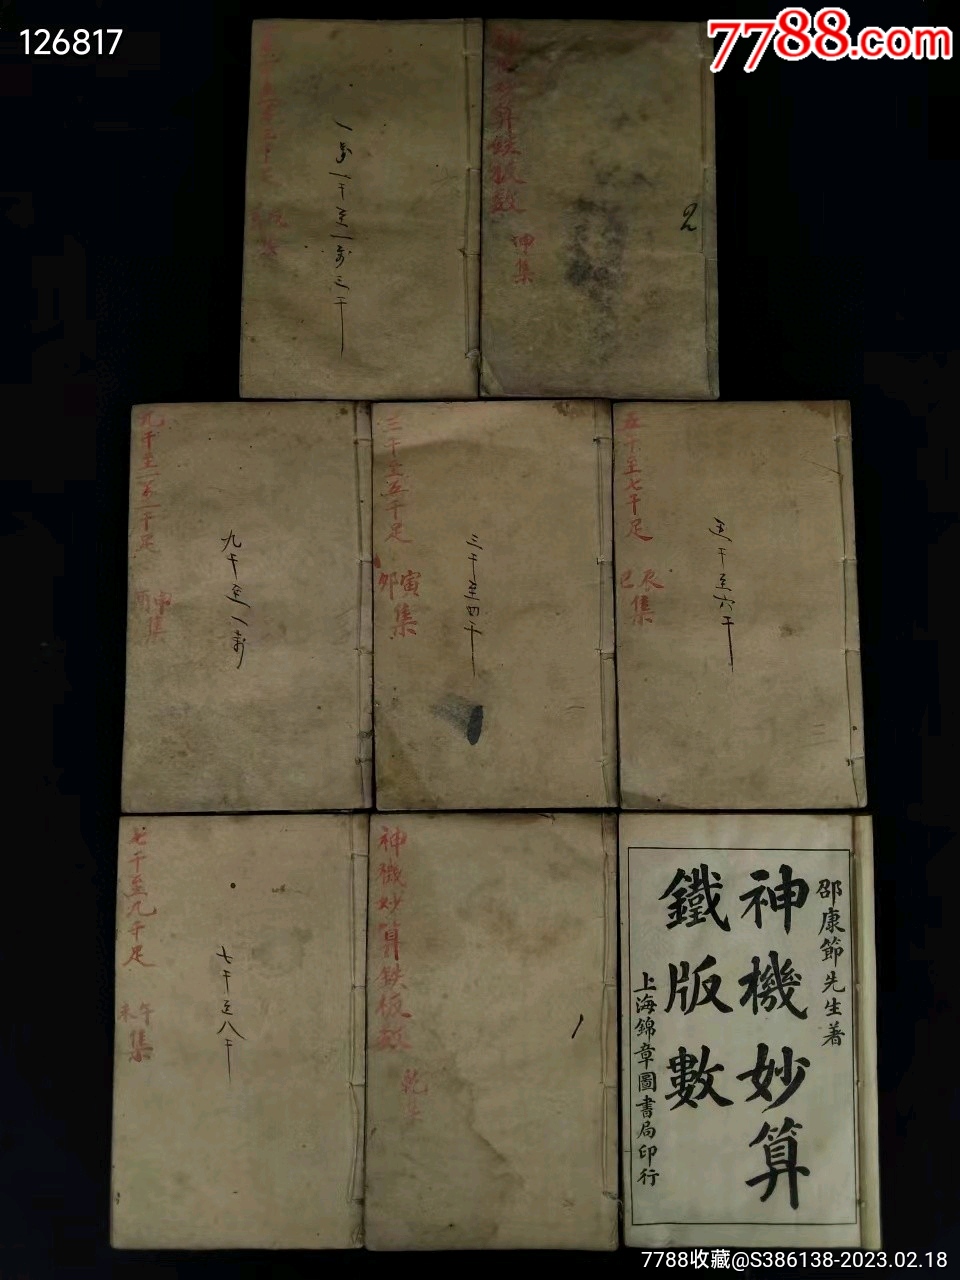 126817
7788.com
一萬一千至一萬三千
算鉄板数
坤集
2
九千至一萬一千足
申酉集
九千至一萬
三千至五千足
寅卯集
三千至四千
五千至七千足
辰巳集
五千至六千
七千至九千足
午未集
七千至八千
神機妙算鉄板数
乾集
1
邵康節先生著
神機妙算
鐵版數
上海錦章圖書局印行
7788收藏@S386138-2023.02.18